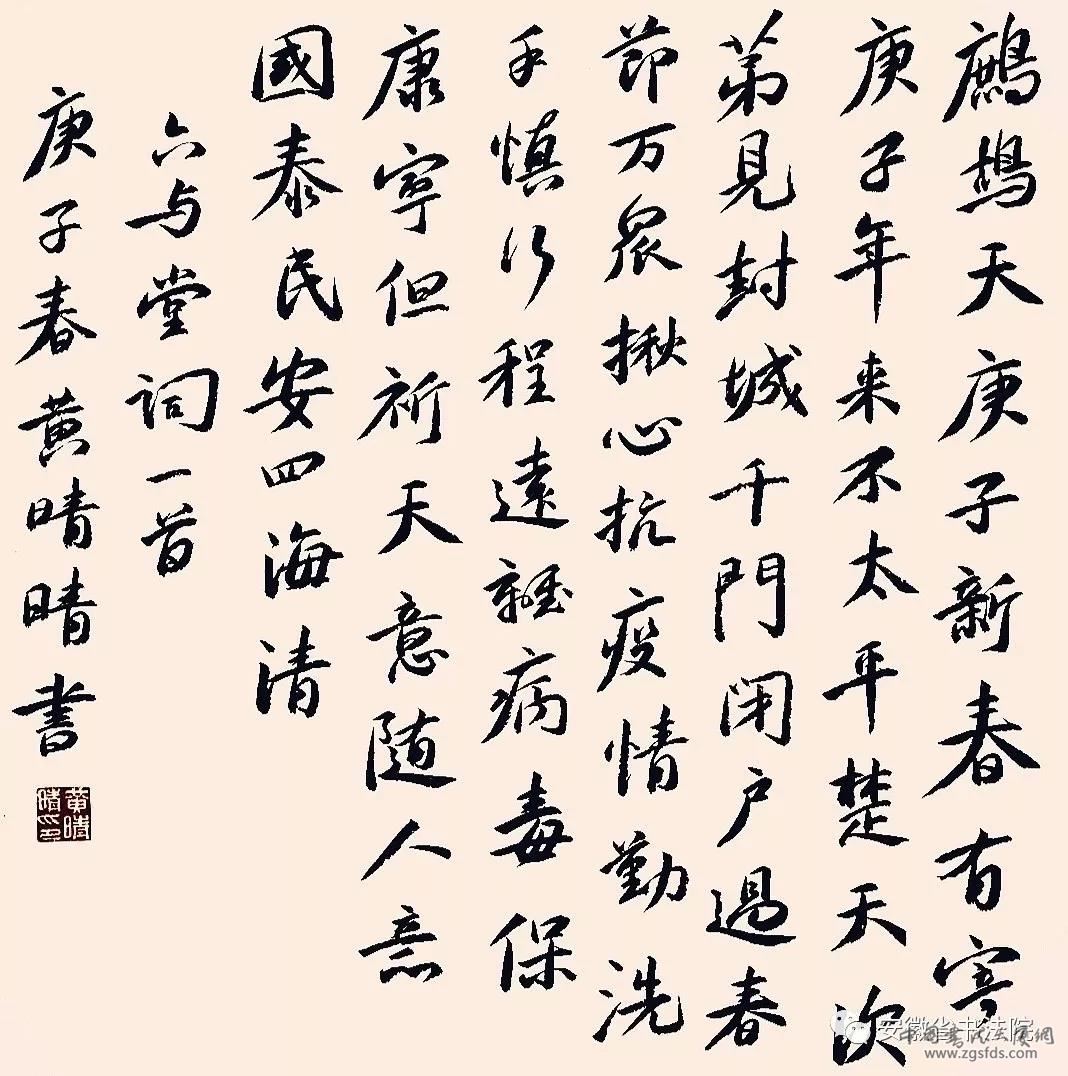 鷓鴣天庚子新春有寄
庚子年来不太平楚天次
第見封城千門閉户過春
節万衆揪心抗疫情勤洗
手慎行程遠離病毒保
康寧但祈天意随人意
國泰民安四海清
六与堂词一首
庚子春黄晴晴書
黄晴晴印
安徽省书法院
www.zgsfds.com